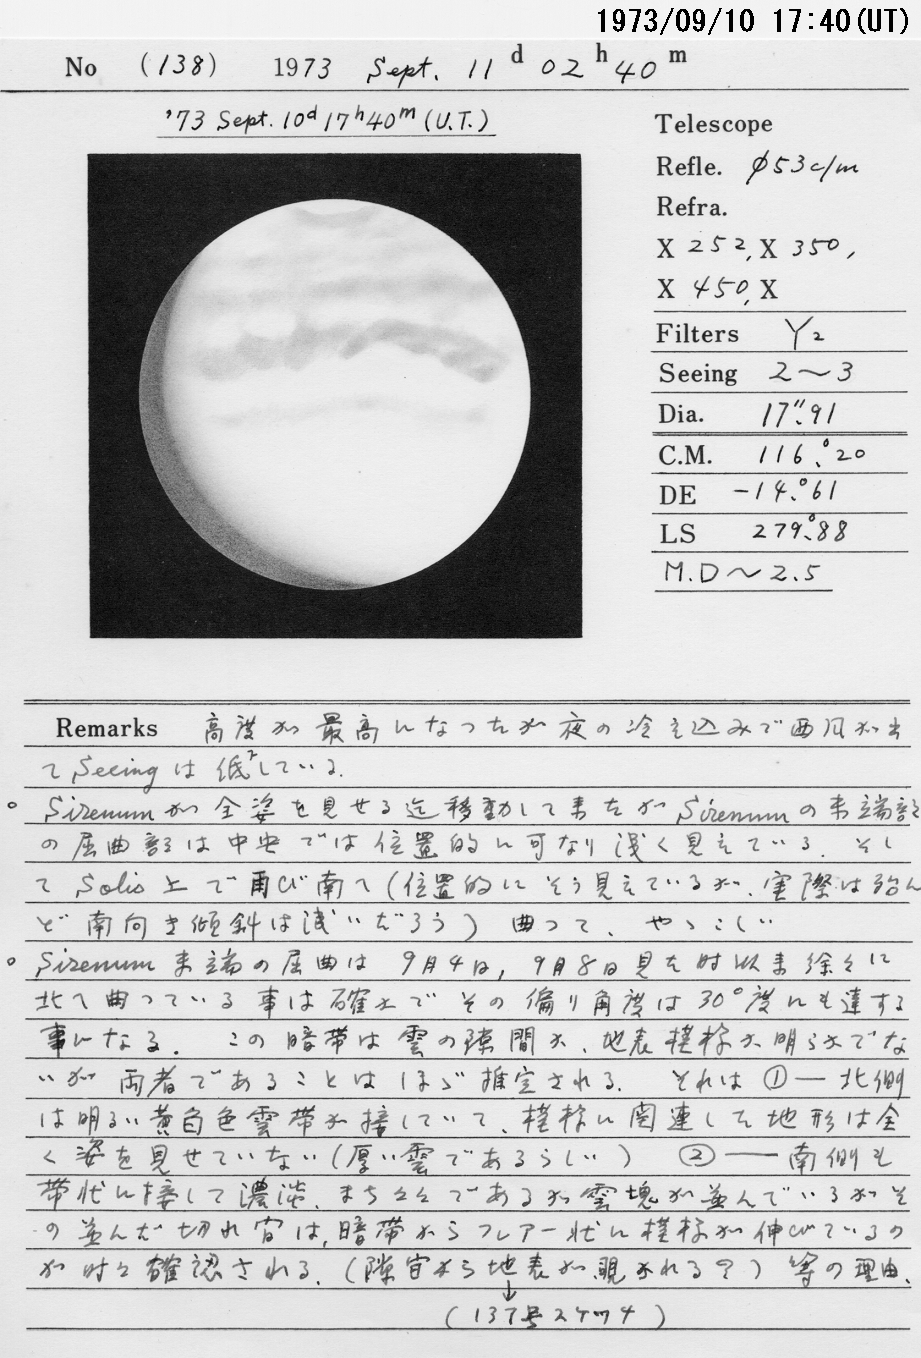 1973/09/10 17:40(UT)
No (138) 1973 Sept. 11 d 02 h 40 m
'73 Sept. 10d 17h40m (U.T.)
Telescope
Refle. φ53c/m
Refra.
X 252, X 350,
X 450, X
Filters Y2
Seeing 2〜3
Dia. 17".91
C.M. 116.°20
DE -14.°61
LS 279.°88
M.D〜2.5
Remarks 高度が最高になったが夜の冷え込みで西風が出
てSeeingは低下している.
○ Sirenumが全姿を見せる迄移動して来たがSirenumの末端部
の屈曲部は中央では位置的に可なり浅く見えている. そし
てSolis上で再び南へ(位置的にそう見えているが、実際は殆ん
ど南向き傾斜は浅いだろう)曲って、やゝこしい
○ Sirenum末端の屈曲は9月4日, 9月8日見た時以来徐々に
北へ曲っている事は確かでその偏り角度は30°度にも達する
事になる. この暗帯は雲の隙間か、地表模様か明らかでな
いが両者であることはほゞ推定される. それは①―北側
は明るい黄白色雲帯が接していて、模様に関連した地形は全
く姿を見せていない(厚い雲であるらしい) ②―南側も
帯状に接して濃淡、まちまちであるが雲塊が並んでいるがそ
の並んだ切れ間は,暗帯からフレアー状に模様が伸びているの
が時々確認される. (隙間から地表が覗かれる?)等の理由.
↓
(137号スケッチ)